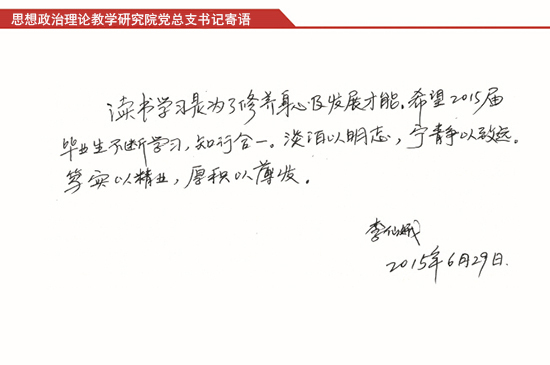 思想政治理论教学研究院党总支书记寄语
读书学习是为了修养身心及发展才能。希望2015届
毕业生不断学习，知行合一。淡泊以明志，宁静以致远。
笃实以精业，厚积以薄发。
李仙娥
2015年6月29日.